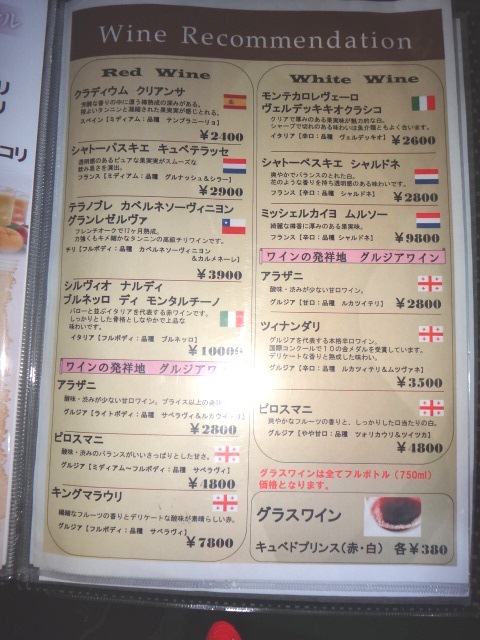 Wine Recommendation
Red Wine
クラディウム クリアンサ
芳醇な香りの中に漂う樽熟成の深みがある。
程よいタンニンと凝縮された果実実が感じとれる。
スペイン【ミディアム:品種 テンプラニーリョ】
¥2400
シャトーペスキエ キュベテラッセ
透明感のあるピュアな果実実がスムーズな
飲み易さを演出。
フランス【ミディアム:品種 グルナッシュ&シラー】
¥2900
テラノブレ カベルネソーヴィニヨン
グランレゼルヴァ
フレンチオークで17ヶ月熟成。
力強くもキメ細かなタンニンの高級チリワインです。
チリ【フルボディ:品種 カベルネソーヴィニヨン
&カルメネーレ】
¥3900
シルヴィオ ナルディ
ブルネッロ ディ モンタルチーノ
バローロと並ぶイタリアを代表する赤ワインです。
しっかりとした骨格としなやかで上品な
味わいです。
イタリア【フルボディ:品種 ブルネッロ】
¥10000
ワインの発祥地 グルジアワ
アラザニ
酸味・渋みが少ない甘口ワイン。
グルジア【ライトボディ:品種 サペラヴィ&ルカツィ
¥2800
ピロスマニ
酸味・渋みのバランスがいいさっぱりとした甘さ。
グルジア【ミディアム〜フルボディ:品種 サペラヴィ】
¥4800
キングマラウリ
繊細なフルーツの香りとデリケートな酸味が素晴らしい赤。
グルジア【フルボディ:品種 サペラヴィ】
¥7800
White Wine
モンテカロレヴェーロ
ヴェルデッキキオクラシコ
クリアで厚みのある果実味が魅力的な白。
シャープで切れのある味わいは魚介類ともよく合います。
イタリア【辛口:品種 ヴェルデッキオ】
¥2600
シャトーペスキエ シャルドネ
爽やかでバランスのとれた白。
花のような香りを持ち透明感のある味わいです。
フランス【辛口:品種 シャルドネ】
¥2800
ミッシェルカイヨ ムルソー
綺麗な樽香に厚みのある果実味。
フランス【辛口:品種 シャルドネ】
¥9800
ワインの発祥地 グルジアワイン
アラザニ
酸味・渋みが少ない甘口ワイン。
グルジア【甘口:品種 ルカツィテリ】
¥2800
ツィナンダリ
グルジアを代表する本格辛口ワイン。
国際コンクールで10の金メダルを受賞しています。
デリケートな香りと熟成した味わい。
グルジア【辛口:品種 ルカツィテリ&ムツヴァネ】
¥3500
ピロスマニ
爽やかなフルーツの香りと、しっかりした口当たりの白。
グルジア【やや甘口:品種 ツォリカウリ&ツイツカ】
¥4800
グラスワインは全てフルボトル(750ml)
価格となります。
グラスワイン
キュベドプリンス(赤・白) 各¥380